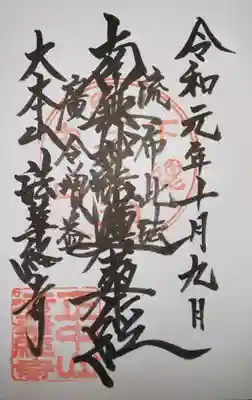 令和元年十月九日
流布此法
南無妙法蓮華経
廣令増益
大本山 法華経寺